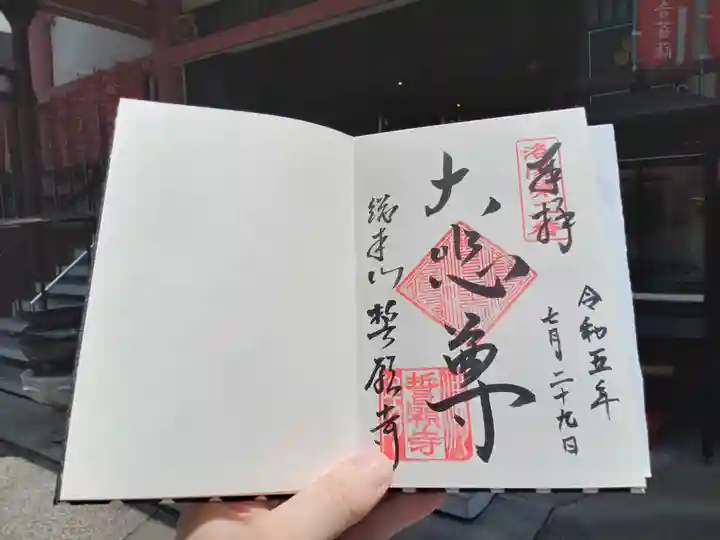 奉拝
令和五年
七月二十九日
大悲尊
総本山誓願寺
誓願寺